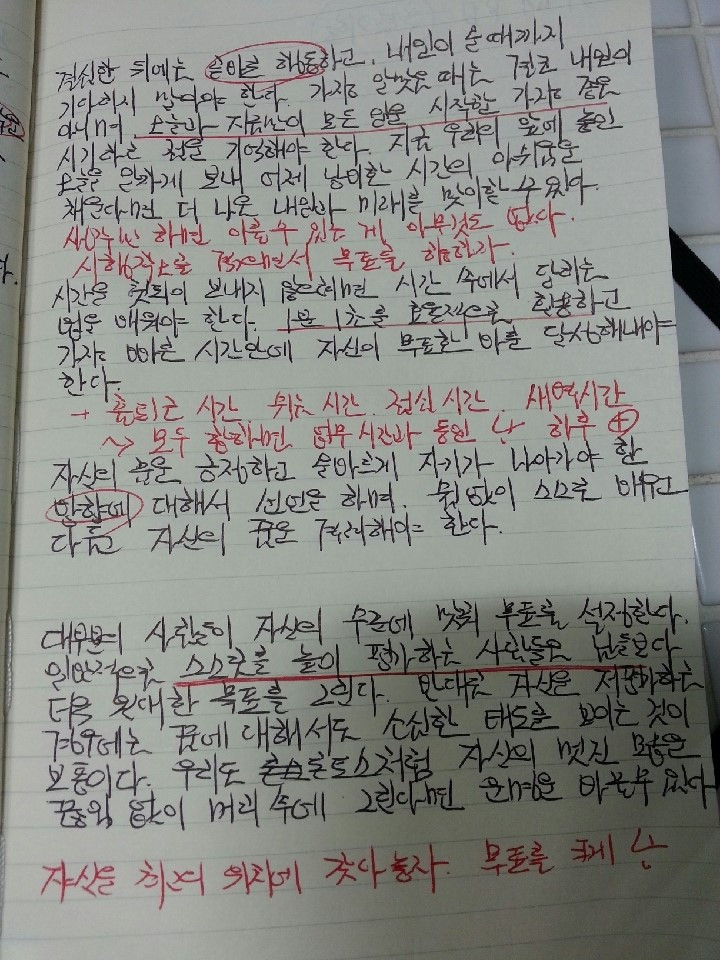 결심한 뒤에는 곧바로 행동하고, 내일이 올 때까지
기다리지 말아야 한다. 가장 알맞은 때는 결코 내일이
아니며, 오늘과 지금만이 모든 일을 시작할 가장 좋은
시기라는 점을 기억해야 한다. 지금 우리의 앞에 놓인
오늘을 알차게 보내 어제 낭비한 시간의 아쉬움을
채운다면 더 나은 내일과 미래를 맞이할 수 있다.
생각만 하면 이룰 수 있는 게 아무것도 없다.
시행착오를 겪으면서 목표를 향해가자.
시간을 헛되이 보내지 않으려면 시간 속에서 달리는
법을 배워야 한다. 1분 1초를 효율적으로 활용하고
가장 빠른 시간안에 자신이 목표한 바를 달성해내야
한다.
→ 출퇴근 시간, 쉬는 시간, 점심 시간, 새벽시간
~> 모두 합하면 업무 시간과 동일 난 하루 4
자신의 꿈을 긍정하고 올바르게 자기가 나아가야 할
방향에 대해서 선언을 하며, 쉼 없이 스스로 배우고
다듬고 자신의 꿈을 격려해야 한다.
대부분의 사람들이 자신의 수준에 맞춰 목표를 설정한다.
일반적으로 스스로를 높이 평가하는 사람들은 남들보다
더욱 원대한 목표를 그린다. 반대로 자신을 저평가하는
경우에는 꿈에 대해서도 소심한 태도를 보이는 것이
보통이다. 우리도 콘스론토스처럼 자신의 멋진 모습을
끊임 없이 머리 속에 그린다면 운명을 바꿀 수 있다
자신을 최고의 위치에 갖다 놓자. 목표를 크게